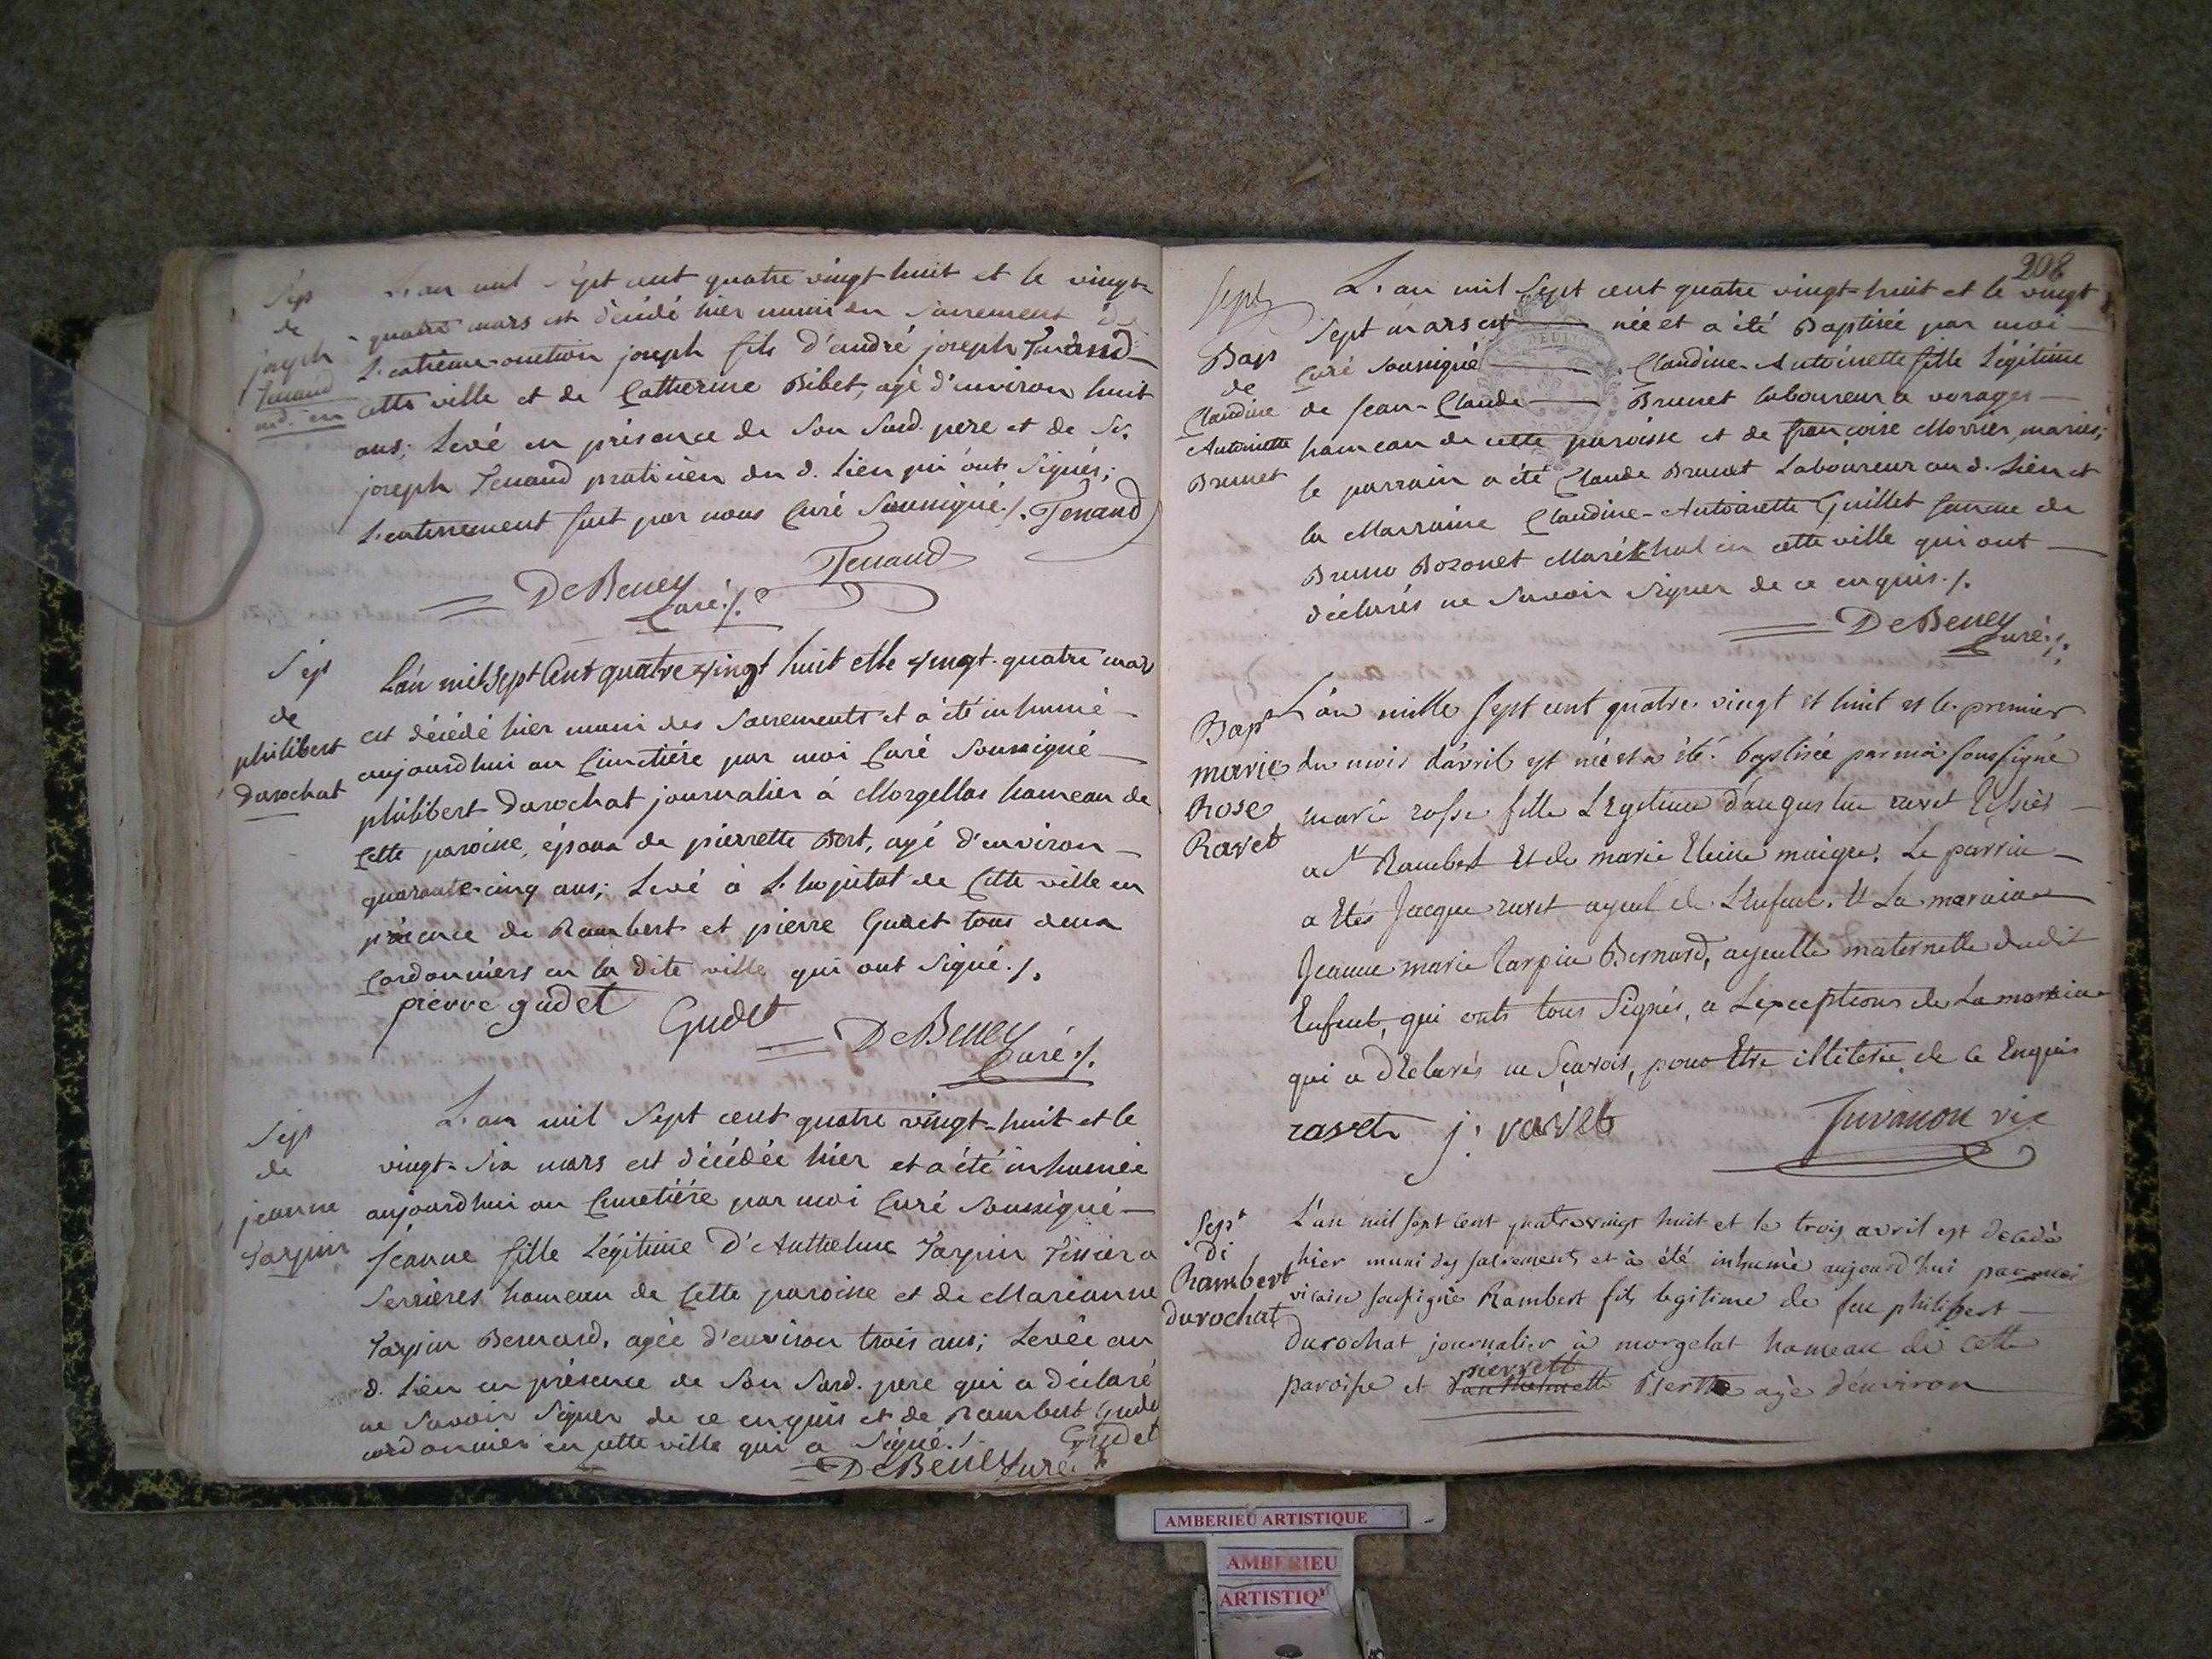 Sep
de
joseph
Tenand
L'an mil sept cent quatre vingt-huit et le vingt-
quatre mars est décédé hier muni du sacrement de
L'extrême-onction joseph fils d'andré joseph Tenand
cette ville et de Catherine Bibet, agé d'environ huit
ans; Levé en présence de son susd. pere et de Sr.
joseph Tenand praticien du d. lieu qui ont signés;
L'enterrement fait par nous Curé soussigné./. Tenand
Tenand
DeBeney
Curé./.
Sep
de
philibert
durochat
L'an mil sept Cent quatre vingt huit et le vingt-quatre mars
est décédé hier muni des sacrements et a été inhumé
aujourdhui au Cimetiére par moi Curé soussigné
philibert durochat journalier à Morgellas hameau de
Cette paroisse, époux de pierrette Bert, agé d'environ
quarante-cinq ans; Levé à L'hopital de Cette ville en
présence de Rambert et pierre Gudet tous deux
Cordonniers en la dite ville qui ont signé./.
pierre gudet
Gudet
DeBeney
Curé./.
Sep
de
jeanne
Tarpin
L'an mil sept cent quatre vingt-huit et le
vingt-six mars est décédée hier et a été inhumée
aujourdhui au Cimetiére par moi Curé soussigné
Jeanne fille Légitime D'Anthelme Tarpin Tissier a
Serrières hameau de Cette paroisse et de Marianne
Tarpin Bernard, agée d'environ trois ans; Levée au
d. lieu en présence de son susd. pere qui a déclaré
ne savoir signer de ce enquis et de Rambert Gudet
cordonnier en cette ville qui a signé./.
Gudet
DeBeney Curé
208
Sept
Bap
de
Claudine
Antoinette
Brunet
L'an mil sept cent quatre vingt-huit et le vingt
sept mars est née et a été Baptisée par moi
Curé soussigné Claudine-Antoinette fille légitime
de Jean-Claude Brunet laboureur a vorages
hameau de cette paroisse et de françoise Morrier, mariés;
le parrain a été Claude Brunet Laboureur au d. lieu et
la Marraine Claudine-Antoinette Guillet femme de
Bruno Bozonet Maréchal en cette ville qui ont
déclarés ne savoir signer de ce enquis./.
DeBeney
Curé./.
Bapt
marie
Rose
Ravet
L'an mille sept cent quatre vingt et huit et le premier
du mois d'avril est née et a été baptisée par moi soussigné
marie rosse fille Légitime d'augustin ravet tissier
a St Rambert Et de marie Maigre. Le parrin
a Etés Jacque ravet ayeul de L'Enfent. Et La maraine
Jeanne marie tarpin Bernard, ayeulle maternelle dudit
Enfent, qui onts tous Signés, a L'exceptions de La maraine
qui a dEclarés ne sçavoir, pour Etre illiterée de ce Enquis
ravet j. ravet Juvanon vic
Sept
de
Rambert
durochat
L'an mil sept cent quatre vingt huit et le trois avril est decedé
hier muni des sacrements et à été inhumé aujourd'hui par moi
vicaire soussigné Rambert fils legitime de feu philibert
durochat journalier à morgelat hameau de cette
pierrette
paroisse et Berthe agé d'environ
AMBERIEU ARTISTIQUE
AMBERIEU
ARTISTIQ